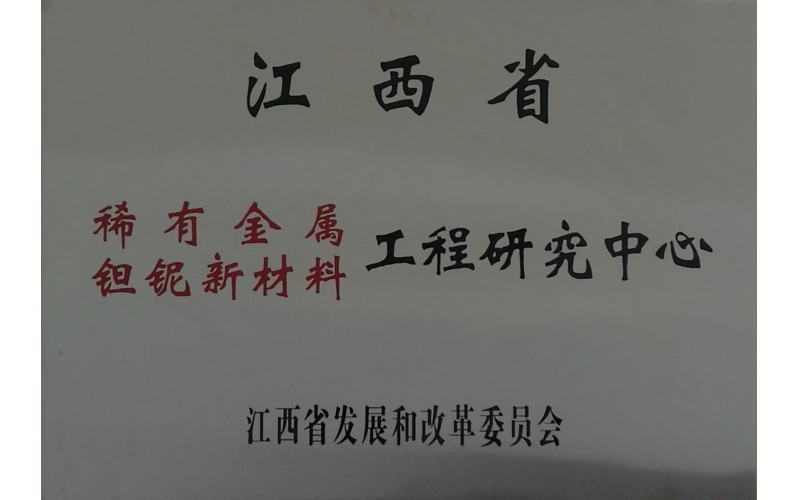 江西省
稀有金属
钽铌新材料
工程研究中心
江西省发展和改革委员会